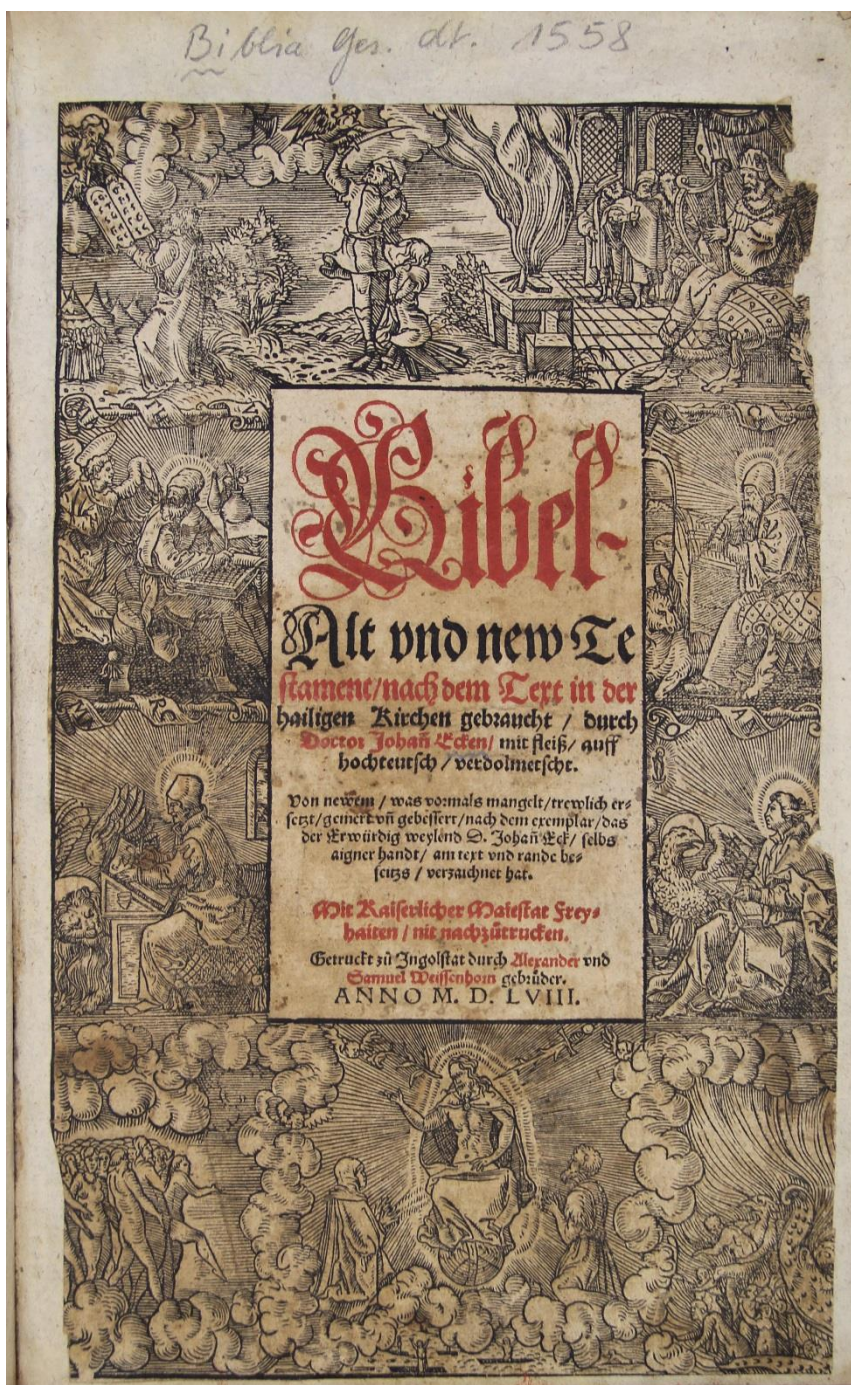 Biblia Ges. dt. 1558
Bibel-
Alt vnd new Te
stament/nach dem Text in der
hailigen Kirchen gebraucht / durch
Doctor Johañ Ecken/ mit fleiß/ auff
hochteutsch / verdolmetscht.
Von newem / was vormals mangelt/trewlich er-
setzt/gemert vñ gebessert/nach dem exemplar/das
der Erwürdig weylend D. Johañ Eck/ selbs
aigner handt/ am text vnd rande be-
seitzs / verzaichnet hat.
Mit Kaiserlicher Maiestat Frey-
haiten / nit nachzůtrucken.
Getruckt zů Ingolstat durch Alexander vnd
Samuel Weissenhorn gebrüder.
ANNO M. D. LVIII.